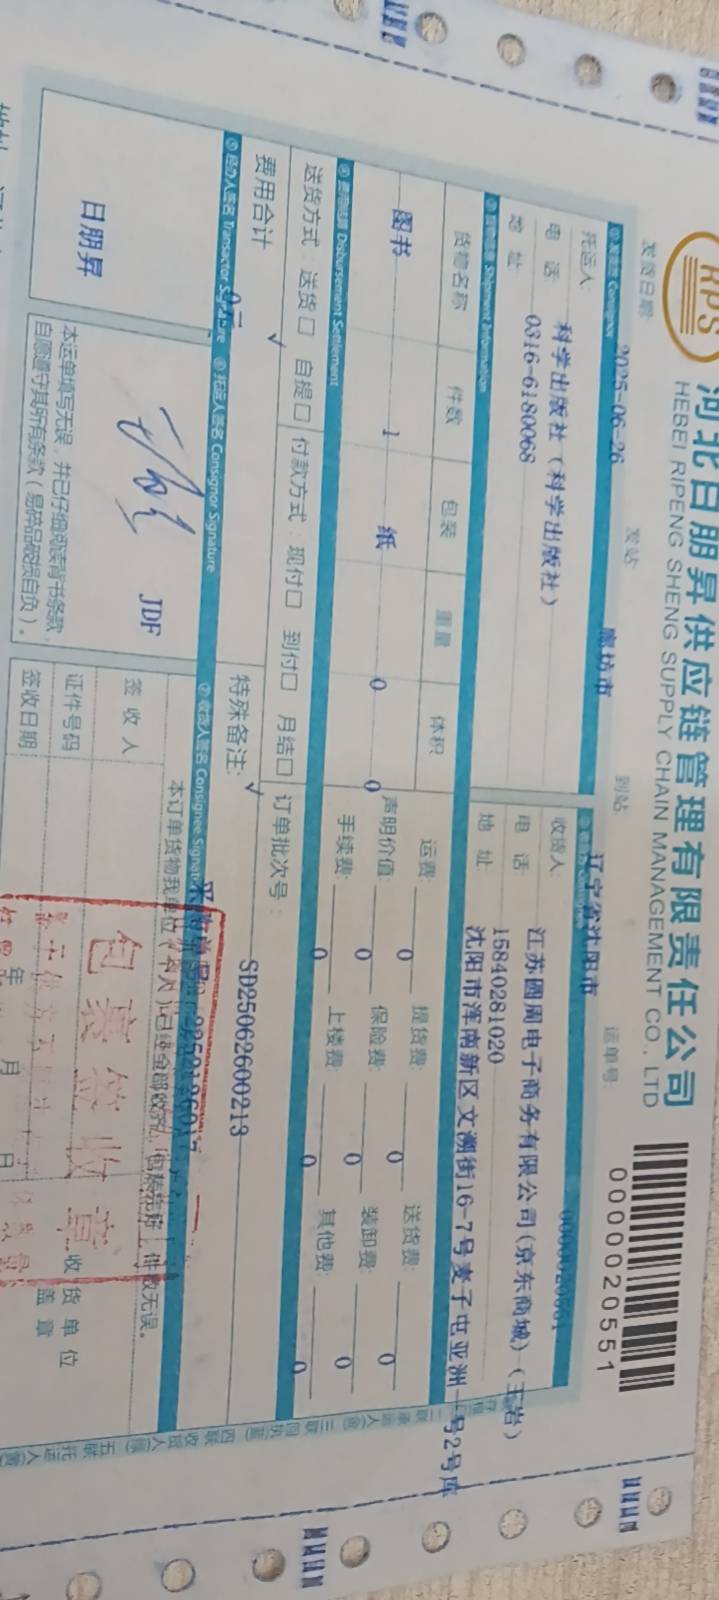 RPS
河北日朋昇供应链管理有限责任公司
HEBEI RIPENG SHENG SUPPLY CHAIN MANAGEMENT CO., LTD
0000020551
发货日期: 2025-06-26 发站 廊坊市 到站 辽宁省沈阳市 运单号: 0000020551
① 发货方 Consignor
托运人: 科学出版社（科学出版社）
电 话: 0316-6180068
地 址:
收货人: 江苏圆周电子商务有限公司(京东商城)（王岩）
电 话: 15840281020
地 址: 沈阳市浑南新区文溯街16-7号麦子屯亚洲一号2号库
③ 货物信息 Shipment Information
货物名称 件数 包装 重量 体积
图书 1 纸 0 0
运费: 0 提货费: 0 送货费: 0
声明价值: 0 保险费: 0 装卸费: 0
手续费: 0 上楼费: 0 其他费: 0
④ 费用结算 Disbursement Settlement
送货方式: 送货□ 自提□ 付款方式: 现付□ 到付□ 月结□ 订单批次号:
费用合计 0元 特殊备注: SD25062600213
⑤ 经办人签名 Transactor Signature ⑥ 托运人签名 Consignor Signature ⑦ 收货人签名 Consignee Signature
日朋昇
JDF
本运单填写无误，并已仔细阅读背书条款，
自愿遵守其所有条款（易碎品破损自负）。
签 收 人
证件号码
签收日期 年 月 日
收货单位
盖 章
包裹签收章